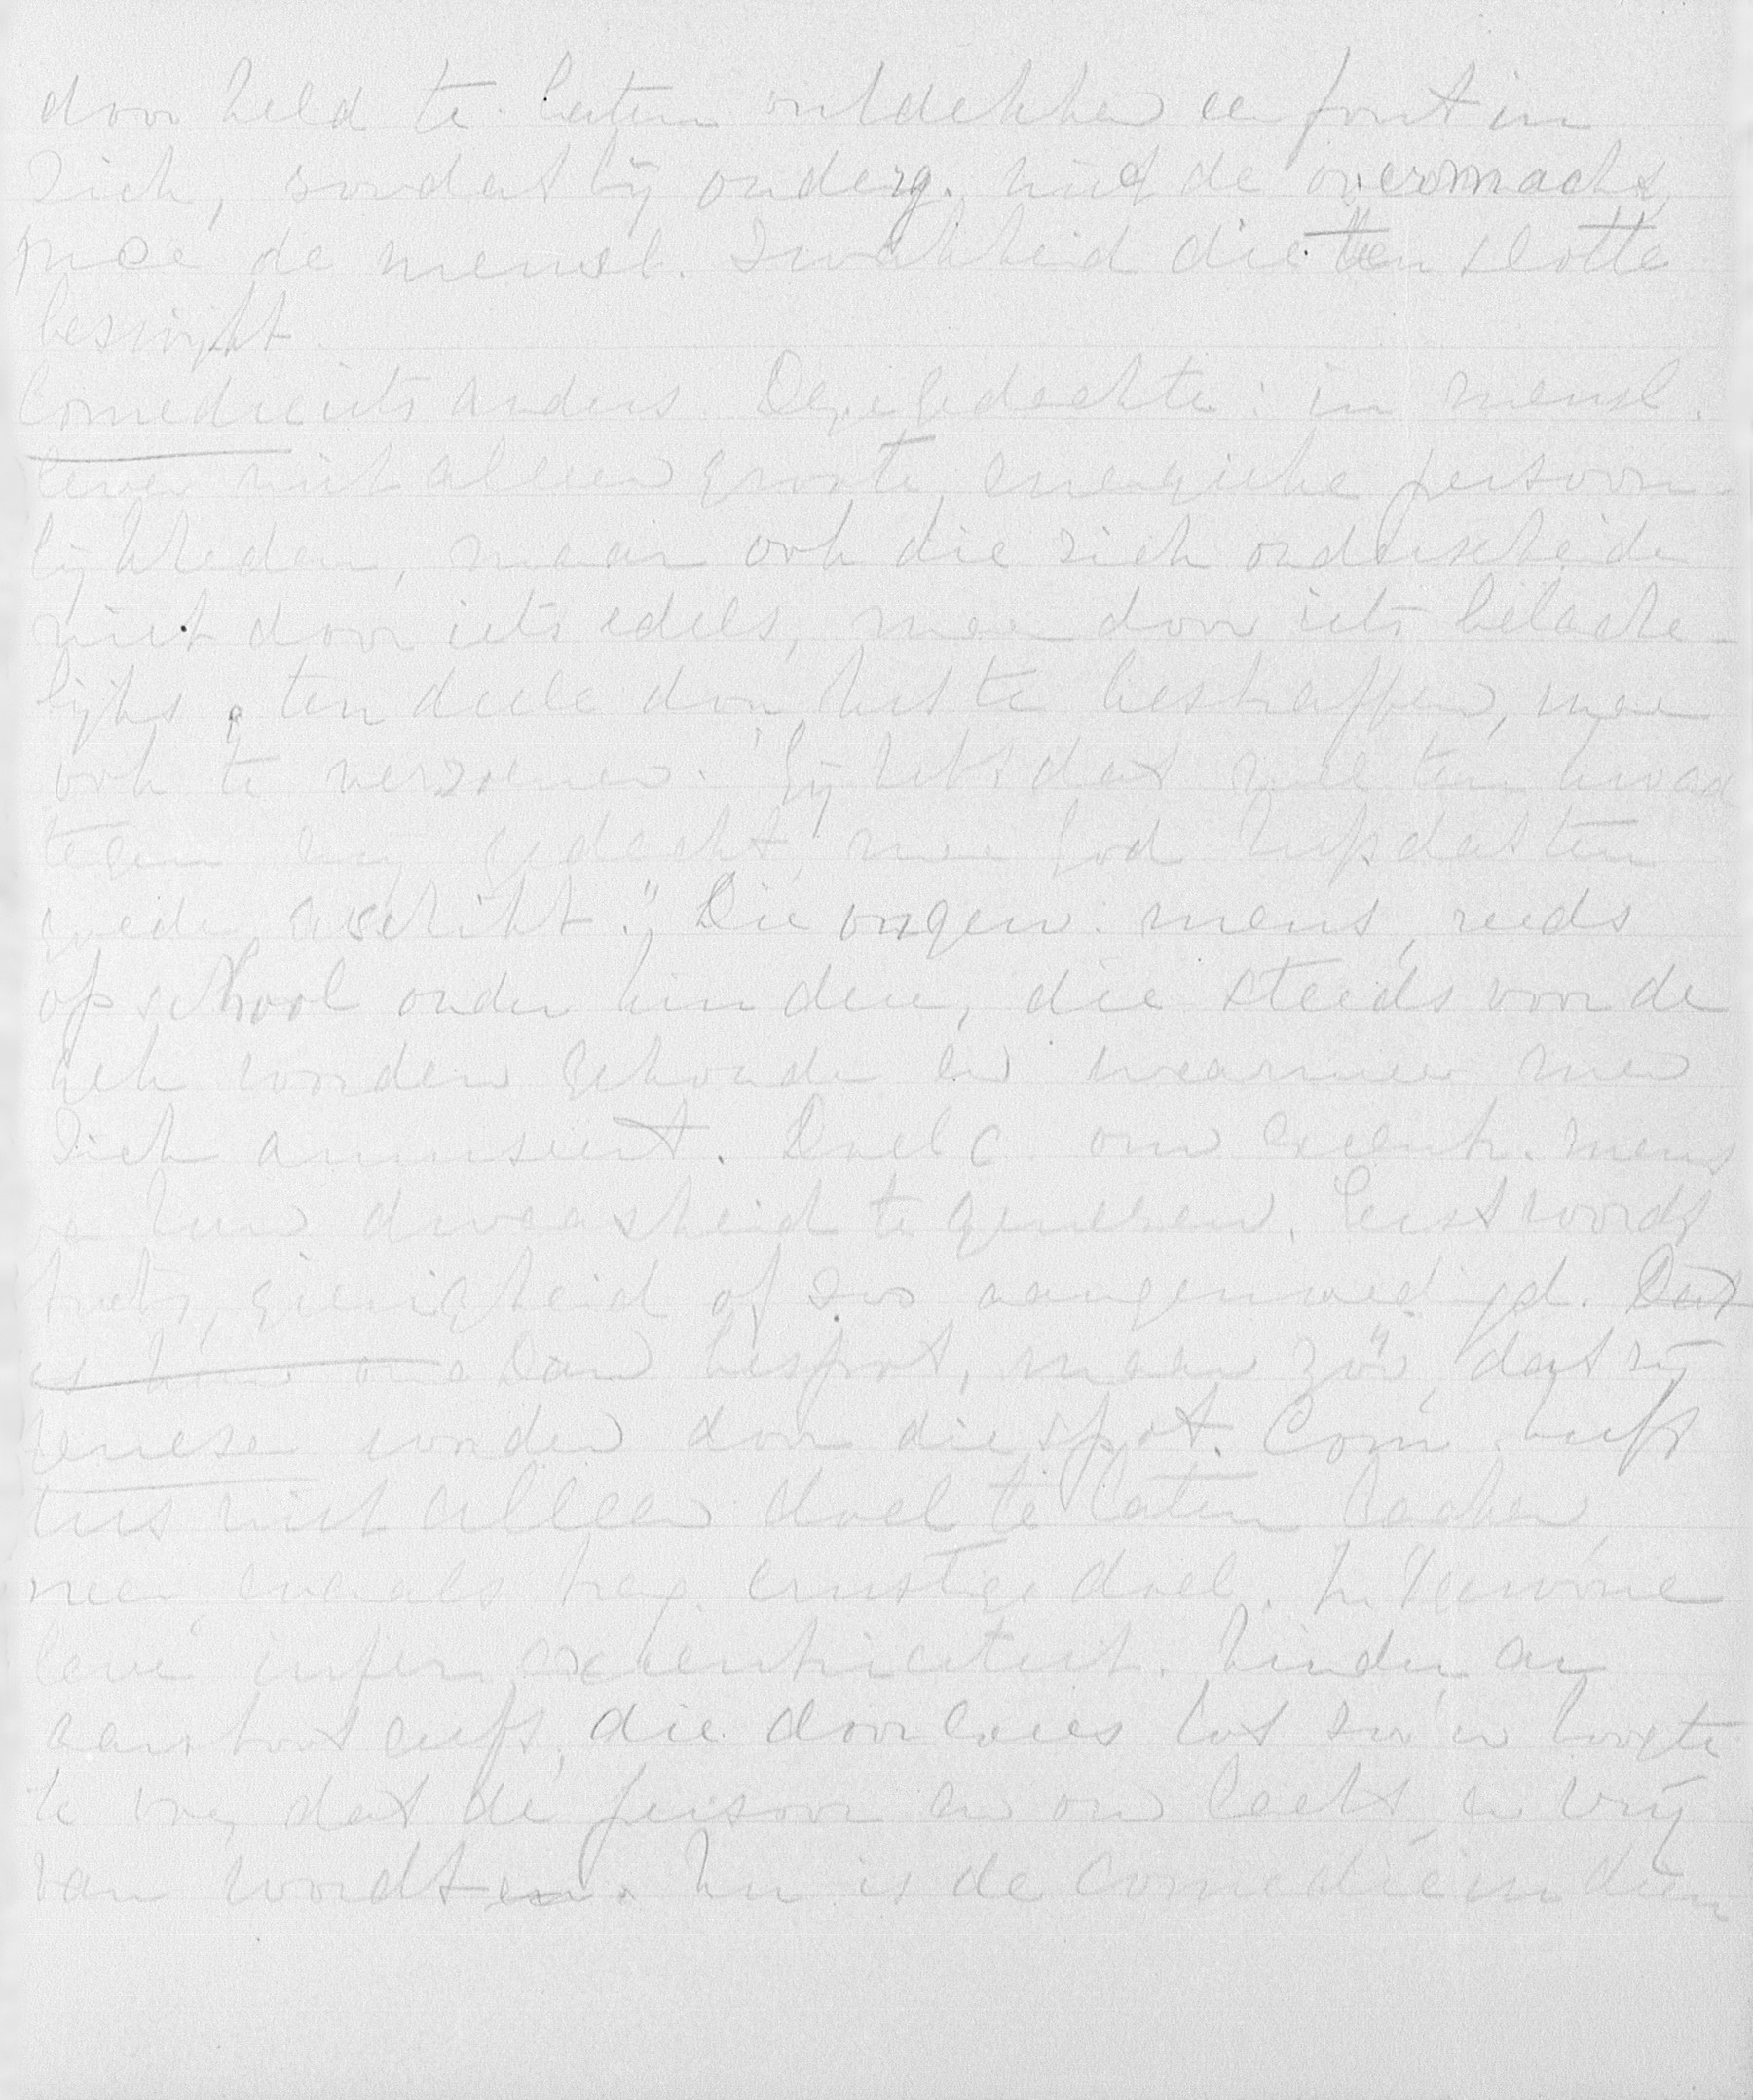 door held te laten ontdekken een fout in
zich, zoodat hij onderg. niet de overmacht,
mee de mensl. zwakheid die ten slotte
beswijkt.
Comedie iets anders. Deze gedachte: in mensl.
leven niet alleen groote, energieke persoon-
lijkheden, maar ook die zich onderscheiden
niet door iets edels, maar door iets belache-
lijks, ten deele door het te bestraffen, maar
ook te verzoenen. "Gij hebt dat wel ten kwade
tegen mij gedacht, maar God heeft dat ten
goede geschikt." Die ongew. mens, reeds
op school onder kinderen, die steeds voor de
gek worden gehouden en waarmee men
zich amuseert. Doel C. om excentr. mens
van hun dwaasheid te genezen. Eerst wordt
trots, gierigheid of zoo aangemoedigd. Dat
is hun Dan bespot, maar zóó, dat zij
genezen worden door die spot. Com. heeft
dus niet alleen doel te laten lachen,
maar evenals trag. ernstige doel. In 't gewone
leven excentriciteit. Kinder
aanstoot geeft, die door lees tot zoo'n hoogte
te voe dat de persoon er om lacht en vrij
van wordt. Nu is de comedie in dien